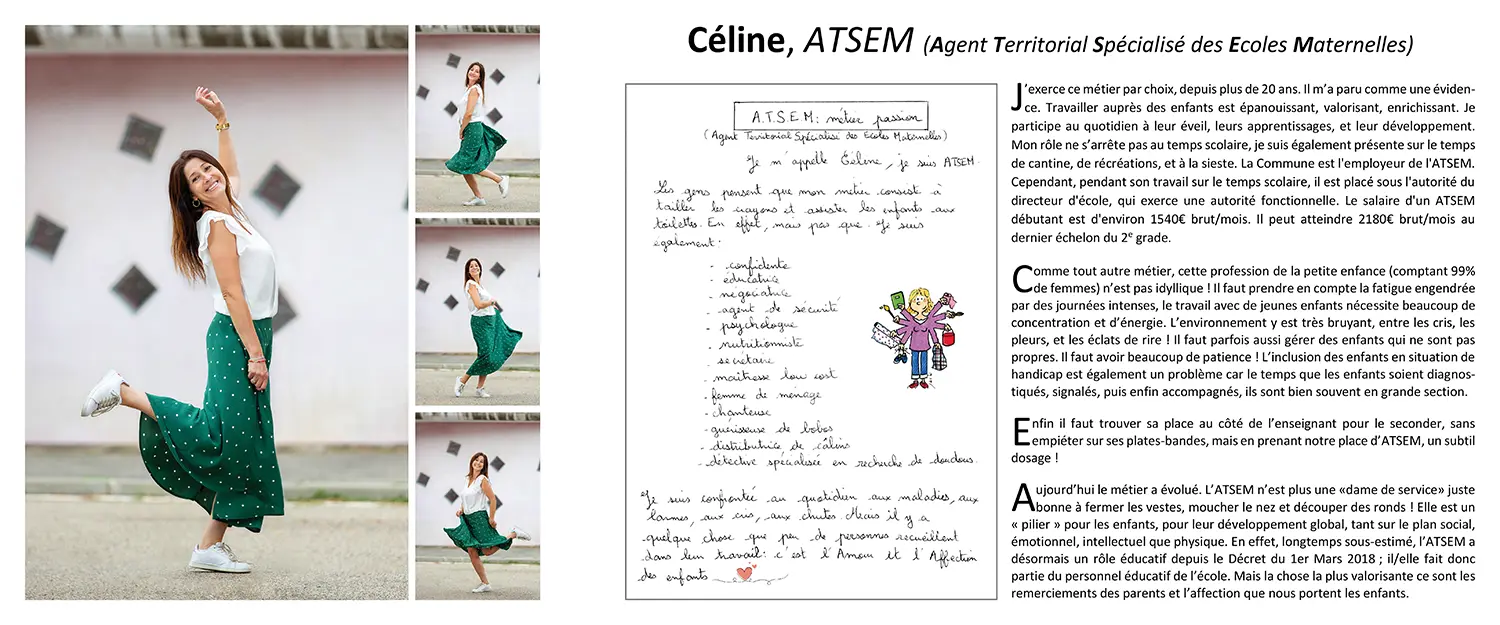 Céline, ATSEM (Agent Territorial Spécialisé des Ecoles Maternelles)
A.T.S.E.M: métier passion
(Agent Territorial Spécialisé des Ecoles Maternelles)
Je m'appelle Céline, je suis ATSEM.
Les gens pensent que mon métier consiste à
tailler les crayons et assister les enfants aux
toilettes. En effet, mais pas que. Je suis
également:
- confidente
- éducatrice
- négociatrice
- agent de sécurité
- psychologue
- nutritionniste
- secrétaire
- maîtresse low cost
- femme de ménage
- chanteuse
- guérisseuse de bobos
- distributrice de câlins
- détective spécialisée en recherche de doudous.
Je suis confrontée au quotidien aux maladies, aux
larmes, aux cris, aux chutes. Mais il y a
quelque chose que peu de personnes recueillent
dans leur travail: c'est l'Amour et l'Affection
des enfants
J'exerce ce métier par choix, depuis plus de 20 ans. Il m'a paru comme une éviden-
ce. Travailler auprès des enfants est épanouissant, valorisant, enrichissant. Je
participe au quotidien à leur éveil, leurs apprentissages, et leur développement.
Mon rôle ne s'arrête pas au temps scolaire, je suis également présente sur le temps
de cantine, de récréations, et à la sieste. La Commune est l'employeur de l'ATSEM.
Cependant, pendant son travail sur le temps scolaire, il est placé sous l'autorité du
directeur d'école, qui exerce une autorité fonctionnelle. Le salaire d'un ATSEM
débutant est d'environ 1540€ brut/mois. Il peut atteindre 2180€ brut/mois au
dernier échelon du 2e grade.
Comme tout autre métier, cette profession de la petite enfance (comptant 99%
de femmes) n'est pas idyllique ! Il faut prendre en compte la fatigue engendrée
par des journées intenses, le travail avec de jeunes enfants nécessite beaucoup de
concentration et d'énergie. L'environnement y est très bruyant, entre les cris, les
pleurs, et les éclats de rire ! Il faut parfois aussi gérer des enfants qui ne sont pas
propres. Il faut avoir beaucoup de patience ! L'inclusion des enfants en situation de
handicap est également un problème car le temps que les enfants soient diagnos-
tiqués, signalés, puis enfin accompagnés, ils sont bien souvent en grande section.
Enfin il faut trouver sa place au côté de l'enseignant pour le seconder, sans
empiéter sur ses plates-bandes, mais en prenant notre place d'ATSEM, un subtil
dosage !
Aujourd'hui le métier a évolué. L'ATSEM n'est plus une «dame de service» juste
bonne à fermer les vestes, moucher le nez et découper des ronds ! Elle est un
« pilier » pour les enfants, pour leur développement global, tant sur le plan social,
émotionnel, intellectuel que physique. En effet, longtemps sous-estimé, l'ATSEM a
désormais un rôle éducatif depuis le Décret du 1er Mars 2018 ; il/elle fait donc
partie du personnel éducatif de l'école. Mais la chose la plus valorisante ce sont les
remerciements des parents et l'affection que nous portent les enfants.